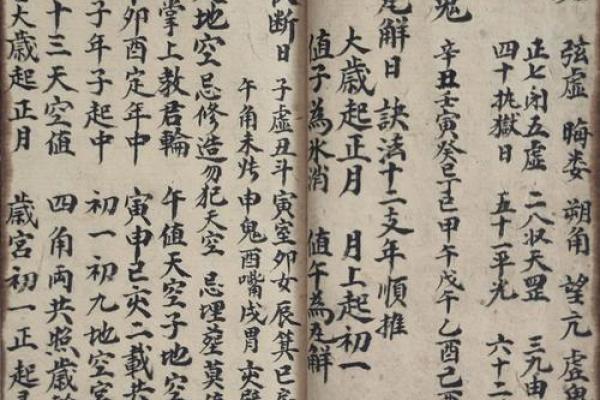 弦虛 晦娄 朔角 望亢 虛鬼
正七閉五虛 二八收天罡 三九由
四十执獄日 五十一平光 六十二
鬼
辛丑壬寅癸巳丁巳甲午戊午乙酉己酉
瓦解日 訣法十二支年順推
大歳起正月 月上起初一
値子為氷消 値午為瓦解
断日 子虛丑斗寅室卯女辰箕巳房
午角未张申鬼酉嘴戌胃亥壁
地空忌修造勿犯天空 忌埋塟莫
掌上教君輪 午値天空子地空
卯酉定年中 寅申巳亥二載共
子年子起中 初一初九地空宮
十三天空値 四角両共照歳
大歳起正月 歳宮初一正起